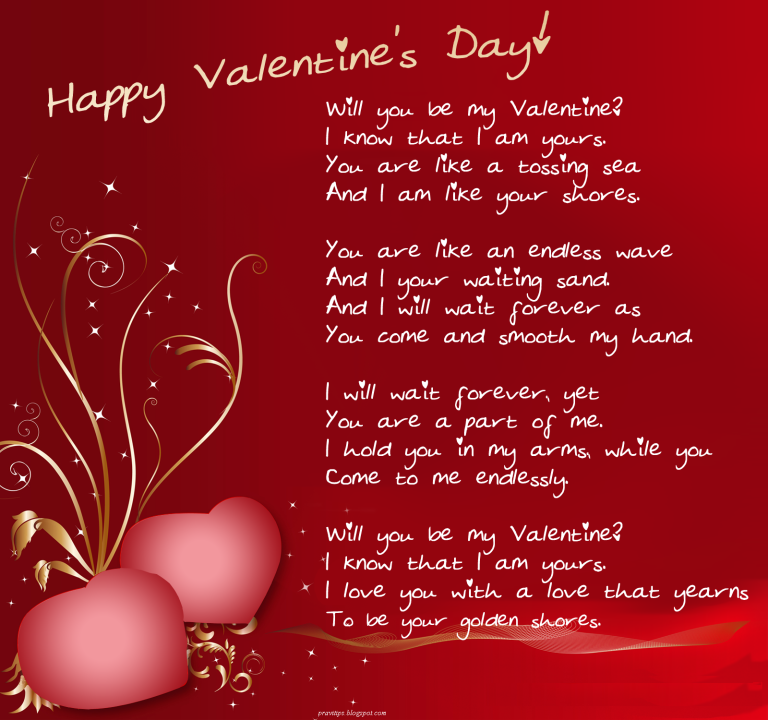 Happy Valentine's Day!
Will you be my Valentine?
I know that I am yours.
You are like a tossing sea
And I am like your shores.
You are like an endless wave
And I your waiting sand.
And I will wait forever as
You come and smooth my hand.
I will wait forever, yet
You are a part of me.
I hold you in my arms, while you
Come to me endlessly.
Will you be my Valentine?
I know that I am yours.
I love you with a love that yearns
To be your golden shores.
pravstips.blogspot.com